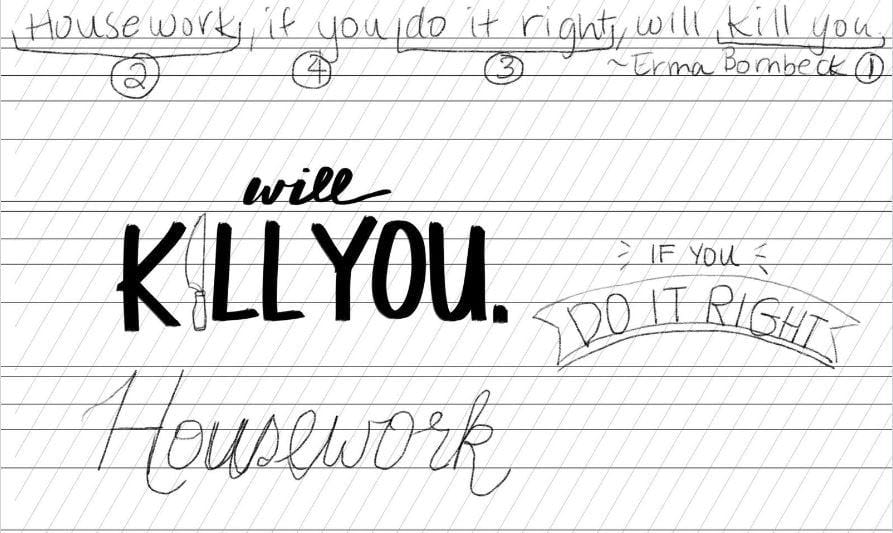 Housework, if you do it right, will kill you.
② ④ ③
~Erma Bombeck ①
will
KILL YOU.
IF YOU
DO IT RIGHT
Housework